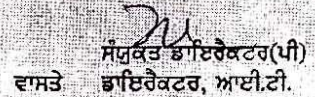 ਸੰਯੁਕਤ ਡਾਇਰੈਕਟਰ(ਪੀ)
ਵਾਸਤੇ ਡਾਇਰੈਕਟਰ, ਆਈ.ਟੀ.